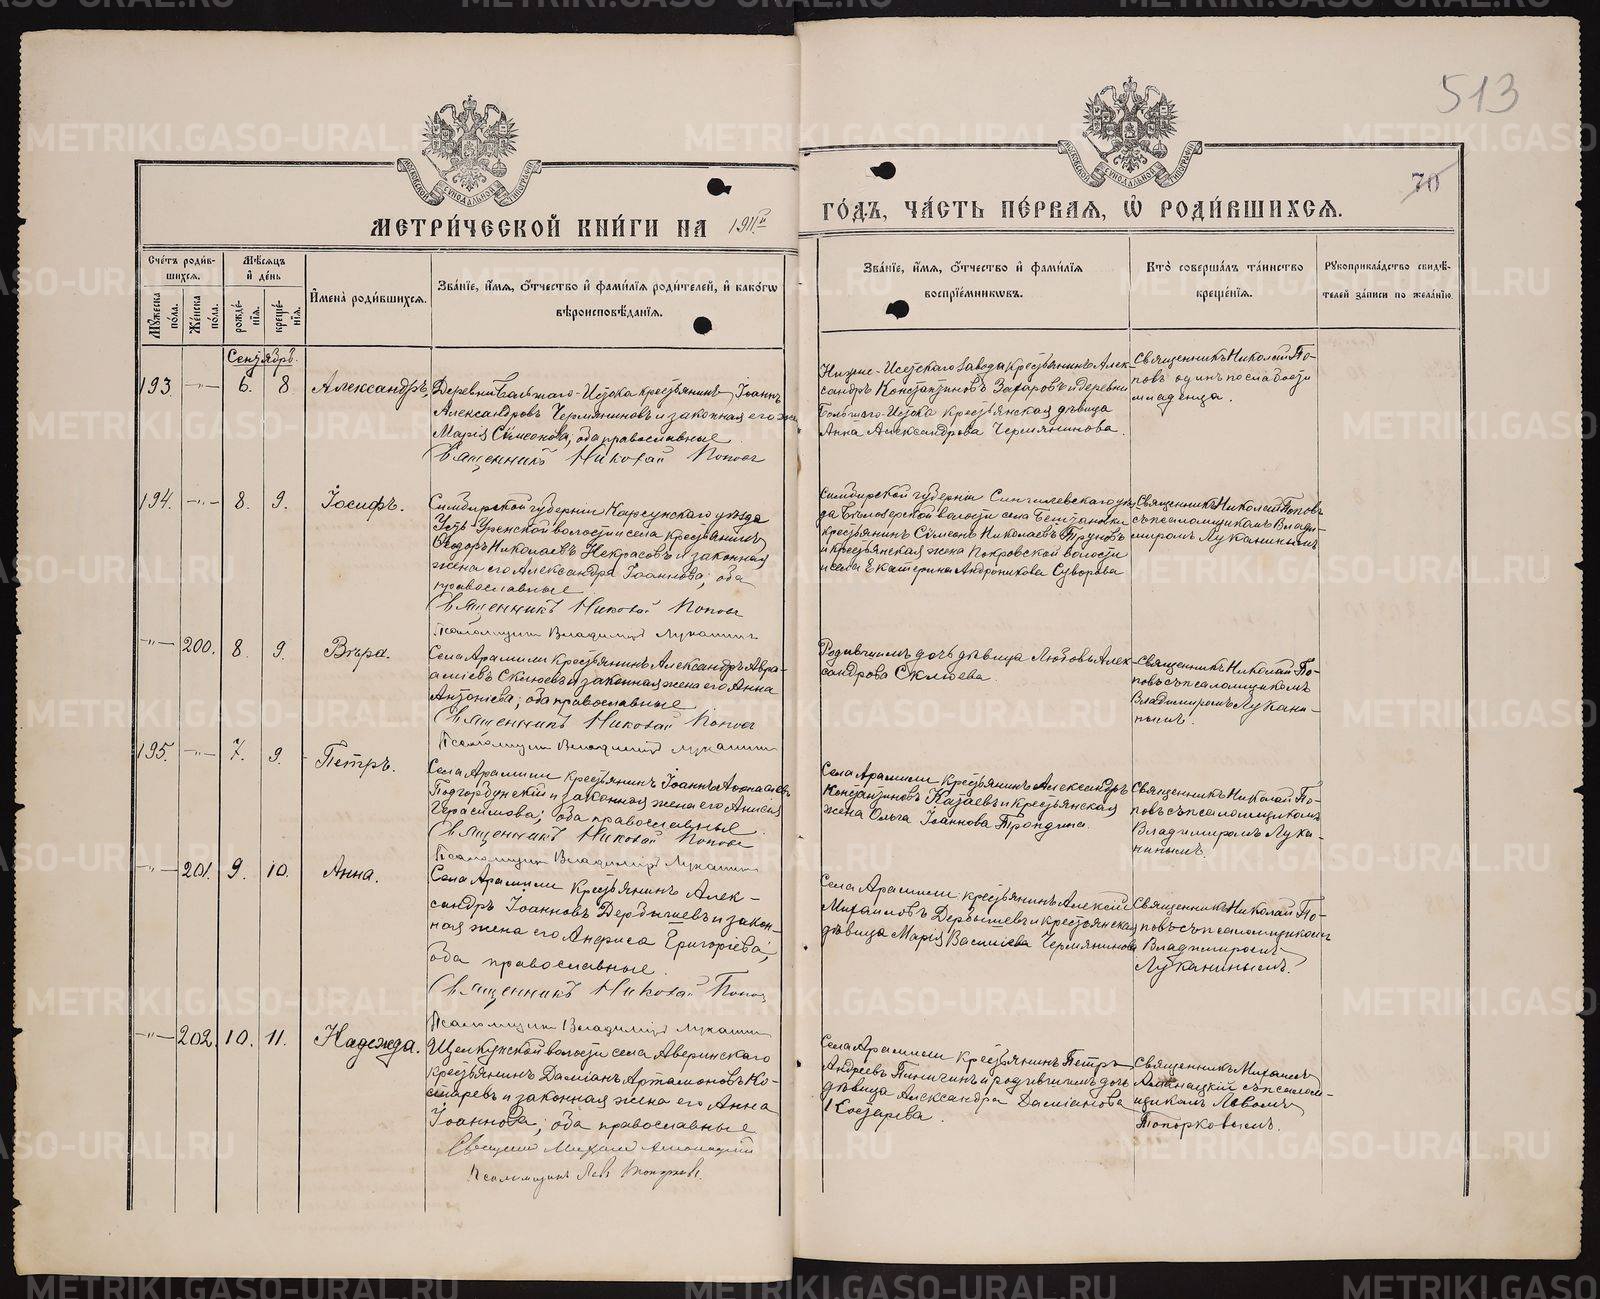 513
70
МЕТРИЧЕСКОЙ КНИГИ НА 1911й
ГОДЪ, ЧАСТЬ ПЕРВАЯ, Ѡ РОДИВШИХСЯ.
Счетъ родив-
шихся.
Мужеска
пола.
Женска
пола.
Мѣсяцъ
и день
рожде-
нія.
креще-
нія.
Имена родившихся.
Званіе, имя, отчество и фамилія родителей, и какогѡ
вѣроисповѣданія.
Званіе, имя, отчество и фамилія
воспріемникѡвъ.
Кто совершалъ таинство
крещенія.
Рукоприкладство свидѣ-
телей записи по желанію
Сентябрь.
193
6.
8
Александръ,
Деревни Большаго-Истока крестьянинъ Іоаннъ
Александровъ Чермяниновъ и законная его
Марія Сѵмеонова, оба православные
Священникъ Николай Поповъ
Нижне-Исетскаго завода крестьянинъ Алек-
сандръ Константиновъ Захаровъ и деревни
Большаго-Истока крестьянская дѣвица
Анна Александрова Чермянинова.
Священникъ Николай По-
повъ одинъ по слабости
младенца.
194.
8.
9.
Іосифъ.
Симбирской губерніи Карсунскаго уѣзда
Усть-Уренской волости и села крестьянинъ
Ѳеодоръ Николаевъ Некрасовъ и законная
жена его Александра Іоаннова; оба
православные
Священникъ Николай Поповъ
Псаломщикъ Владиміръ Луканинъ
Симбирской губерніи Сингилевскаго уѣз-
да
волости села
крестьянинъ Сѵмеонъ Николаевъ Труновъ
и крестьянская жена Покровской волости
и села Екатерина Андроникова Суворова
Священникъ Николай Поповъ
съ псаломщикомъ Влади-
миромъ Луканинымъ
200.
8.
9.
Вѣра.
Села Арамили крестьянинъ Александръ Авра-
аміевъ и законная жена его Анна
Антоніева; оба православные
Священникъ Николай Поповъ
Псаломщикъ Владиміръ Луканинъ
Родившимъ дочь дѣвица Любовь Алек-
сандрова
Священникъ Николай По-
повъ съ псаломщикомъ
Владимиромъ Лукани-
нымъ.
195.
7.
9.
Петръ.
Села Арамили крестьянинъ Іоаннъ Аѳанасіевъ
Подгорбунскій и законная жена его Анисія
Герасимова; оба православные.
Священникъ Николай Поповъ
Псаломщикъ Владиміръ Луканинъ
Села Арамили крестьянинъ Александръ
Константиновъ и крестьянская
жена Ольга Іоаннова
Священникъ Николай По-
повъ съ псаломщикомъ
Владимиромъ Лука-
нинымъ.
201.
9.
10.
Анна.
Села Арамили крестьянинъ Алек-
сандръ Іоанновъ Дербышевъ и закон-
ная жена его Анфиса Григоріева;
оба православные.
Священникъ Николай Поповъ
Псаломщикъ Владиміръ Луканинъ
Села Арамили крестьянинъ Алексій
Михаиловъ Дербышевъ и крестьянская
дѣвица Марія Василіева Чермянинова
Священникъ Николай По-
повъ съ псаломщикомъ
Владимиромъ
Луканинымъ.
202.
10.
11.
Надежда.
Щелкунской волости села Аверинскаго
крестьянинъ Даміанъ Артамоновъ Ко-
старевъ и законная жена его Анна
Іоаннова; оба православные
Священникъ Михаилъ
Псаломщикъ Левъ Топорковъ.
Села Арамили крестьянинъ Петръ
Андреевъ и родившимъ дочь
дѣвица Александра Даміанова
Костарева.
Священникъ Михаилъ
съ псалом-
щикомъ Львомъ
Топорковымъ.
METRIKI.GASO-URAL.RU